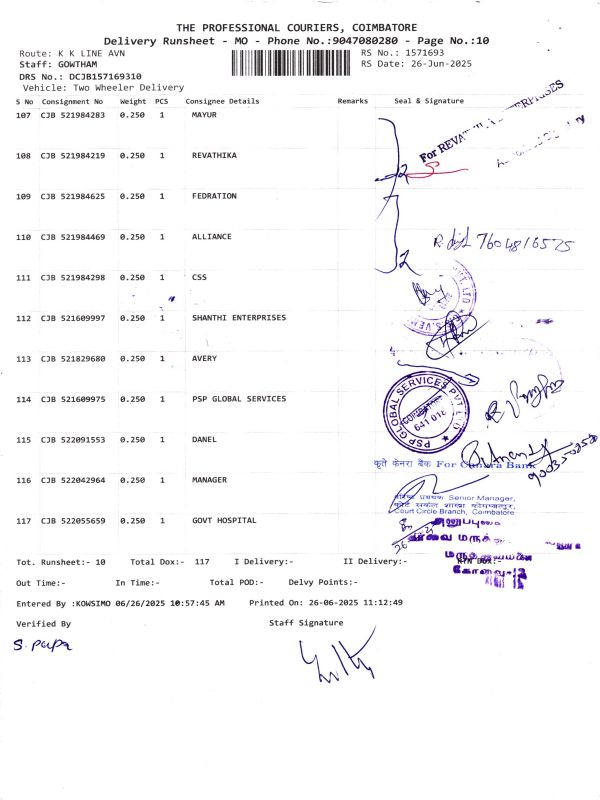 THE PROFESSIONAL COURIERS, COIMBATORE
Delivery Runsheet - MO - Phone No.:9047080280 - Page No.:10
Route: K K LINE AVN RS No.: 1571693
Staff: GOWTHAM RS Date: 26-Jun-2025
DRS No.: DCJB157169310
Vehicle: Two Wheeler Delivery
S No Consignment No Weight PCS Consignee Details Remarks Seal & Signature
107 CJB 521984283 0.250 1 MAYUR
For REVATHI
108 CJB 521984219 0.250 1 REVATHIKA
109 CJB 521984625 0.250 1 FEDRATION
110 CJB 521984469 0.250 1 ALLIANCE
7604816575
111 CJB 521984298 0.250 1 CSS
PVT LTD
112 CJB 521609997 0.250 1 SHANTHI ENTERPRISES
113 CJB 521829680 0.250 1 AVERY
114 CJB 521609975 0.250 1 PSP GLOBAL SERVICES
PSP GLOBAL SERVICES PVT LTD
COIMBATORE
641 018
115 CJB 522091553 0.250 1 DANEL
कृते केनरा बैंक For Canara Bank
116 CJB 522042964 0.250 1 MANAGER
Senior Manager,
Court Circle Branch, Coimbatore
117 CJB 522055659 0.250 1 GOVT HOSPITAL
Tot. Runsheet:- 10 Total Dox:- 117 I Delivery:- II Delivery:-
Out Time:- In Time:- Total POD:- Delvy Points:-
Entered By :KOWSIMO 06/26/2025 10:57:45 AM Printed On: 26-06-2025 11:12:49
Verified By Staff Signature
S. papa